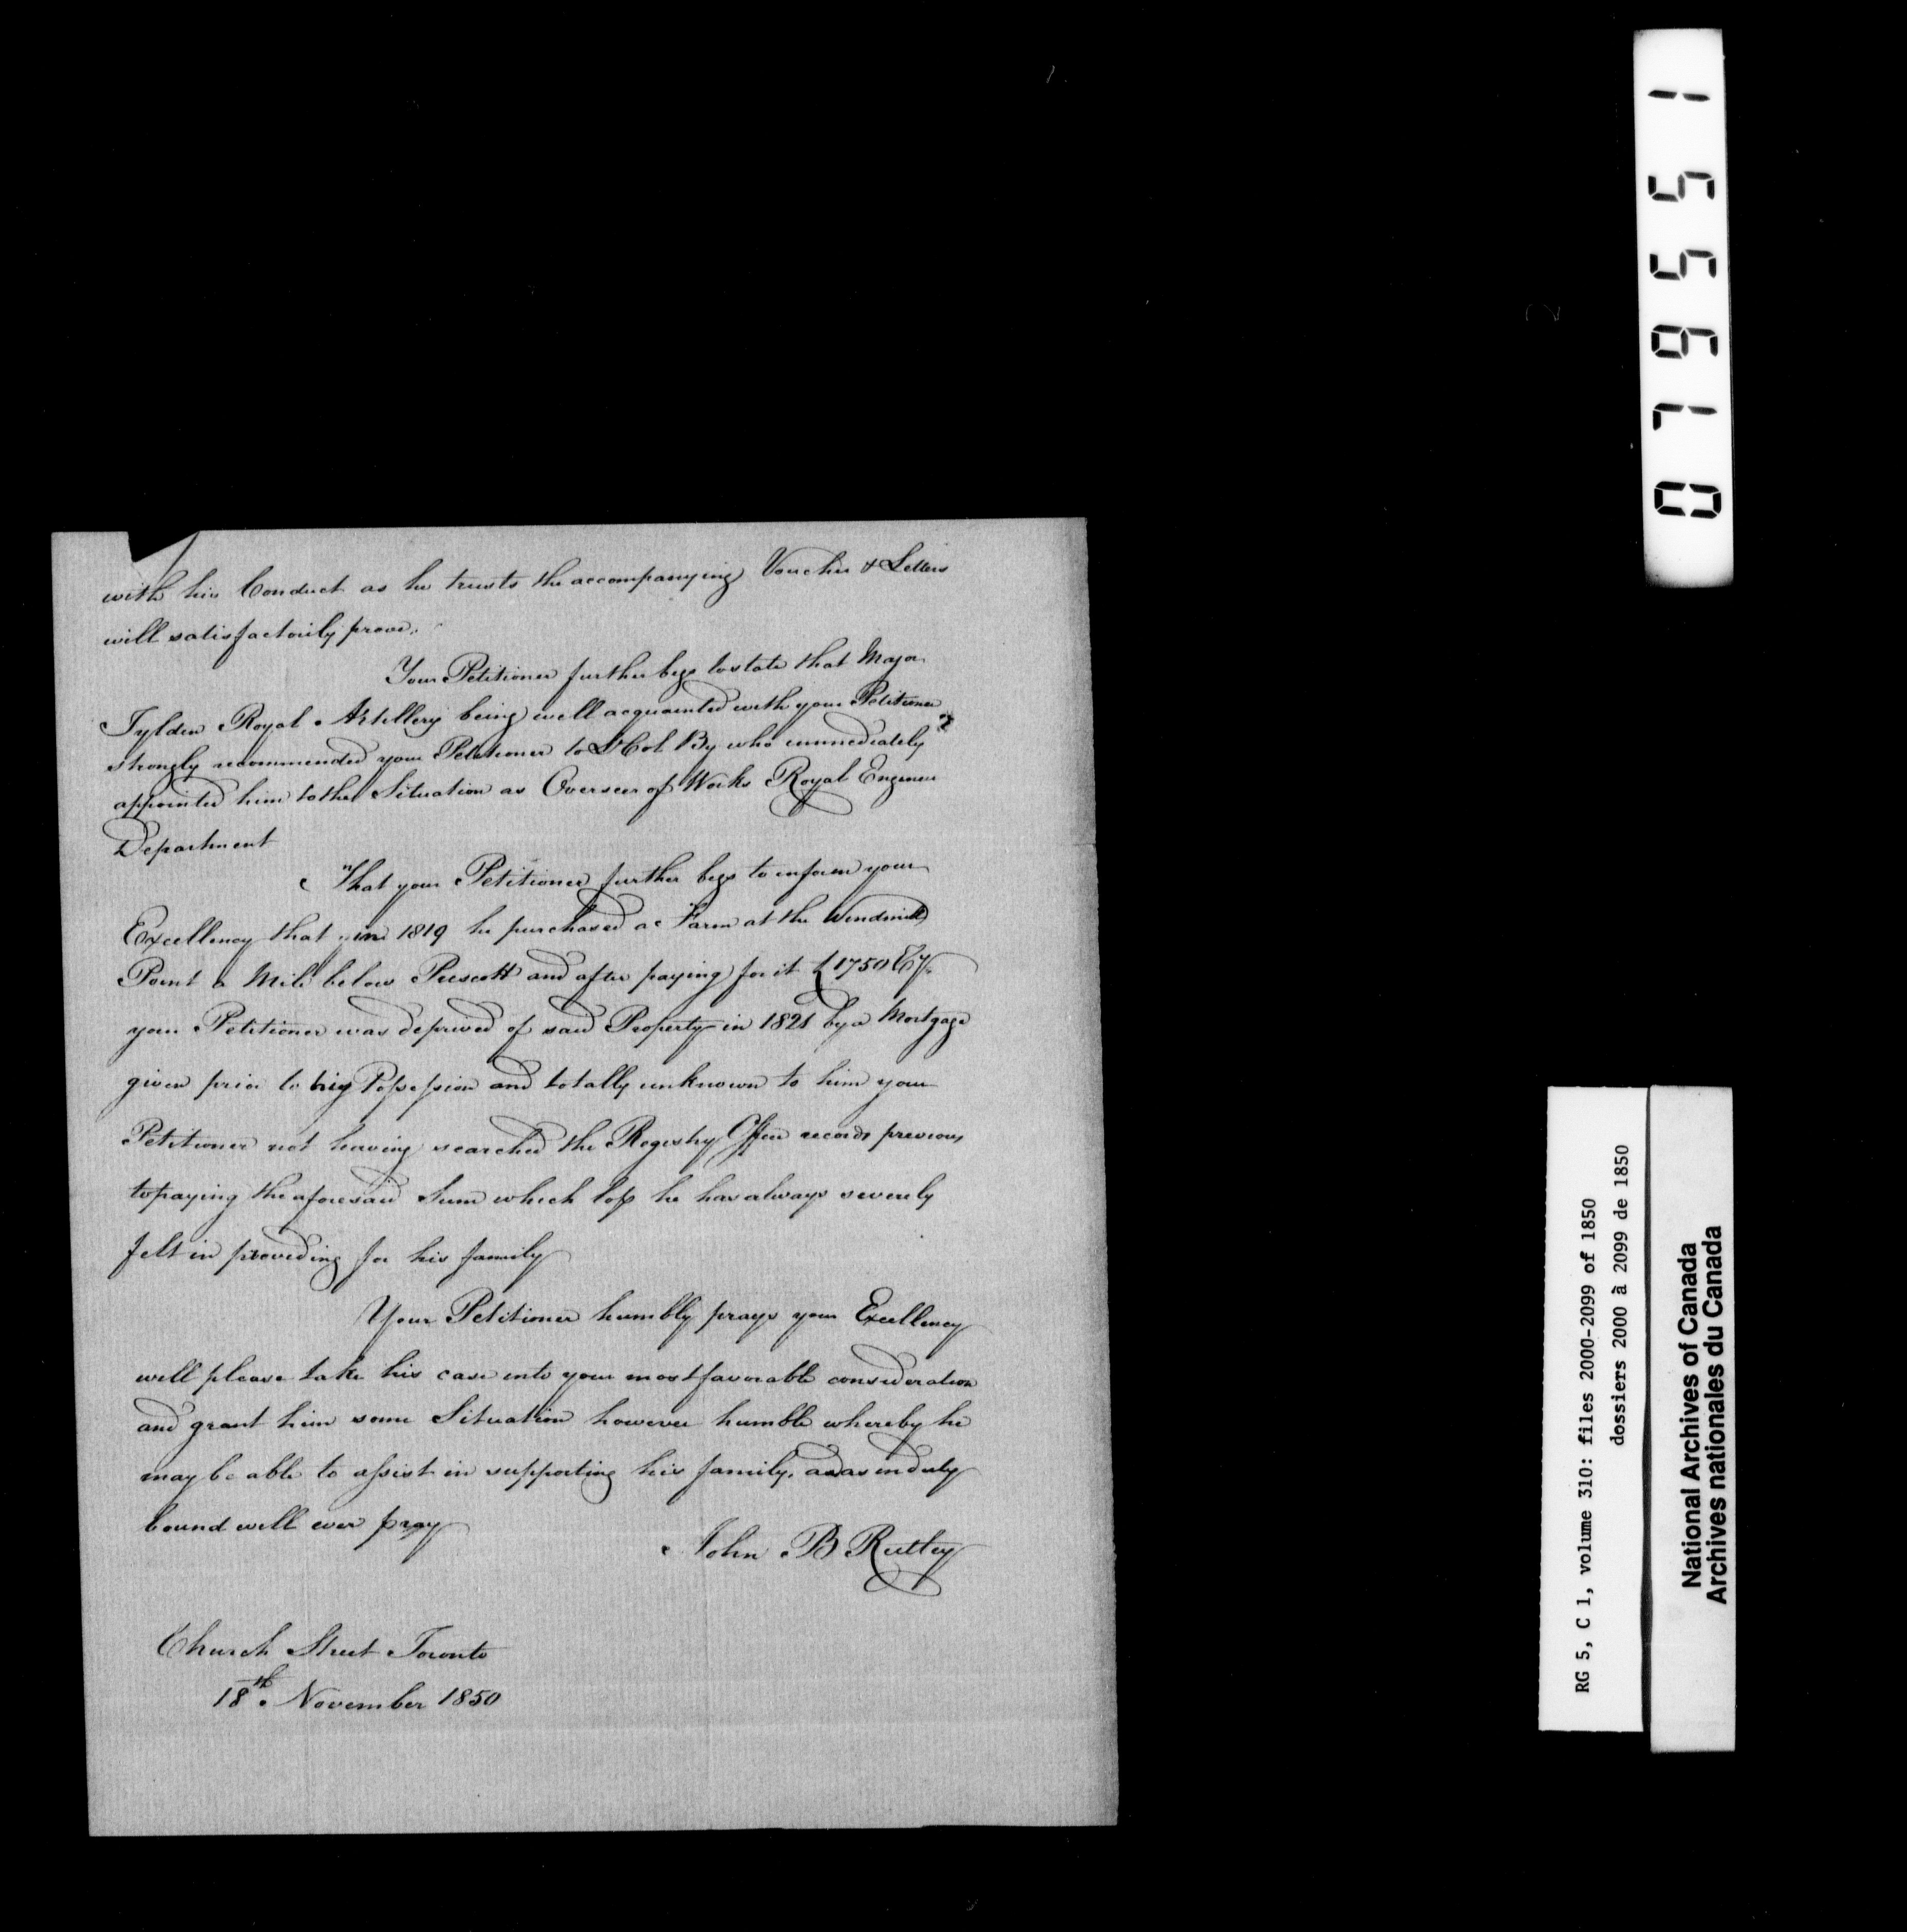 with his Conduct as he trusts the accompanying Voucher & Letters
will satisfactorily prove.
Your Petitioner further begs to state that Major
Tylden Royal Artillery being well acquainted with your Petitioner
strongly recommended your Petitioner to Lt Col By who immediately
appointed him to the Situation as Overseer of Works Royal Engineer
Department
That your Petitioner further begs to inform your
Excellency that in 1819 he purchased a Farm at the Windmill
Point a Mile below Prescott and after paying for it £1750 Cy.
your Petitioner was deprived of said Property in 1821 by a Mortgage
given prior to his Possession and totally unknown to him your
Petitioner not having searched the Registry Office records previous
to paying the aforesaid Sum which loss he has always severely
felt in providing for his family
Your Petitioner humbly prays your Excellency
will please take his case into your most favorable consideration
and grant him some Situation however humble whereby he
may be able to assist in supporting his family, and as in duty
bound will ever pray
John B Ruttey
Church Street Toronto
18th November 1850
076551
RG 5, C 1, volume 310: files 2000-2099 of 1850
dossiers 2000 à 2099 de 1850
National Archives of Canada
Archives nationales du Canada